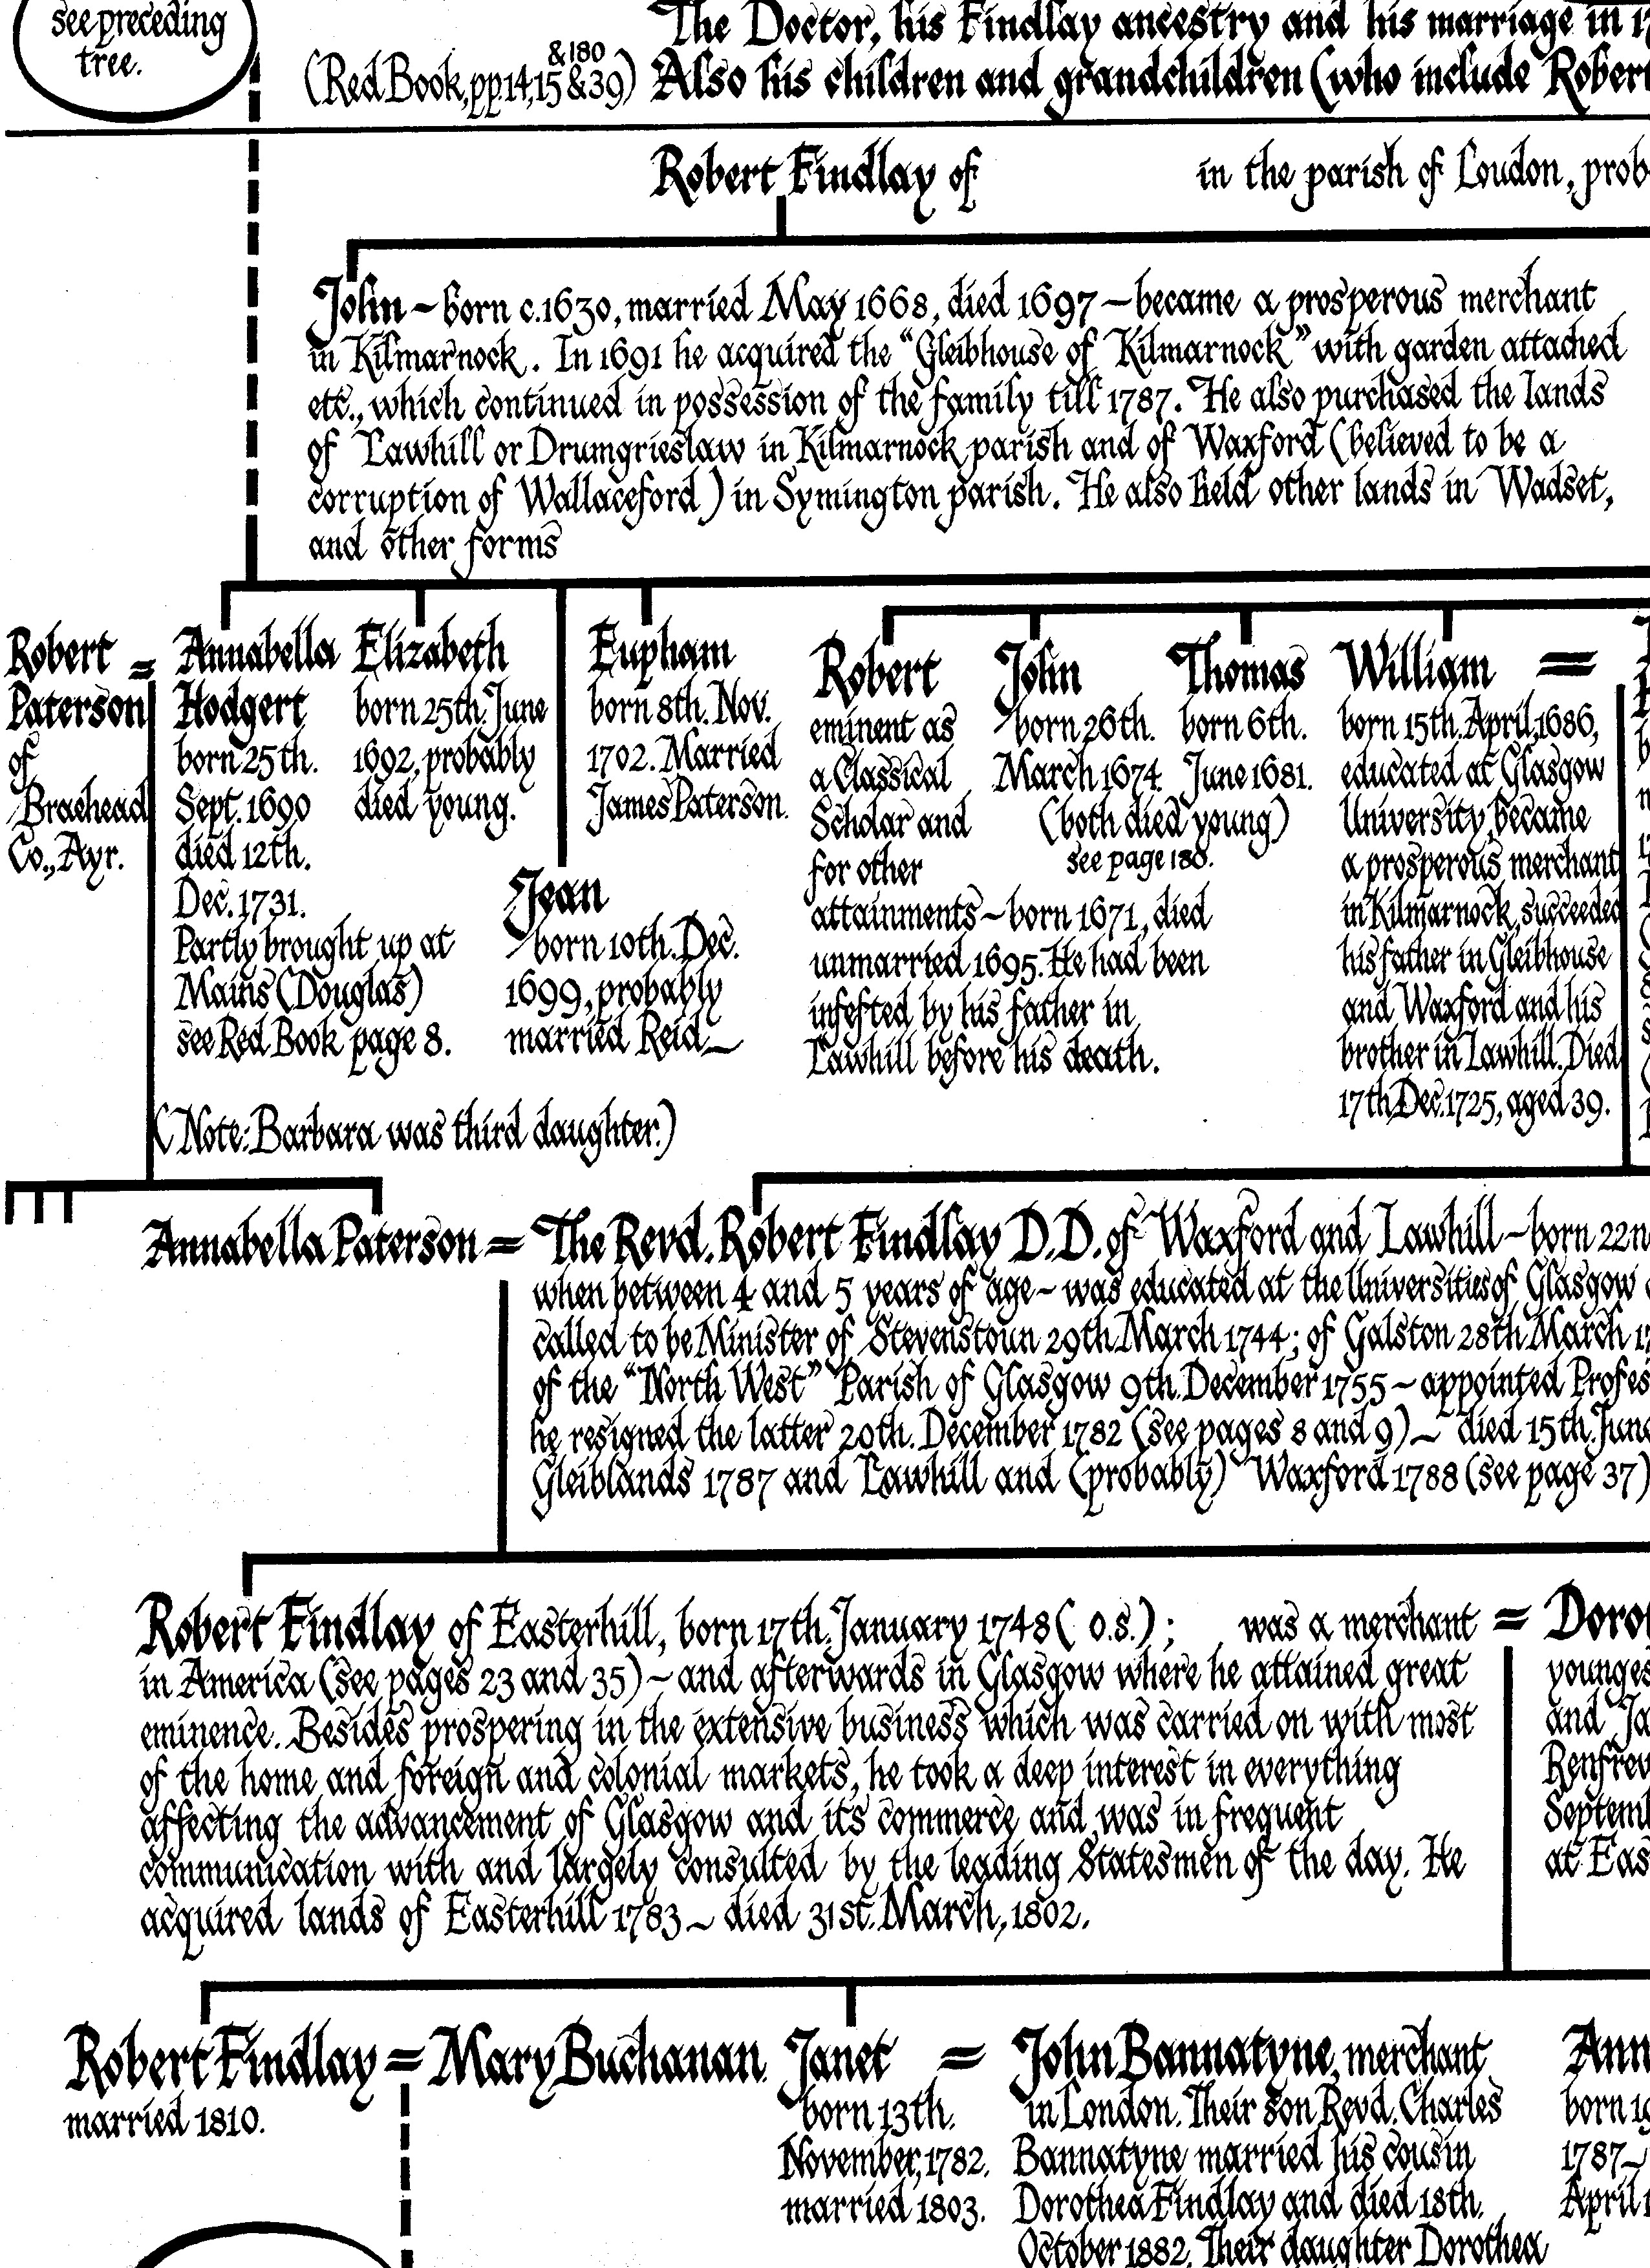 see preceding
tree.
The Doctor, his Findlay ancestry and his marriage in
&180
(Red Book, pp. 14, 15 & 39) Also his children and grandchildren (who include Robert
Robert Findlay of in the parish of Loudon, prob
John ~ born c.1630, married May 1668, died 1697 — became a prosperous merchant
in Kilmarnock. In 1691 he acquired the "Gleibhouse of Kilmarnock" with garden attached
etc., which continued in possession of the family till 1787. He also purchased the lands
of Lawhill or Drumgrieslaw in Kilmarnock parish and of Waxford (believed to be a
corruption of Wallaceford) in Symington parish. He also held other lands in Wadset,
and other forms
Robert =
Paterson
of
Braehead
Co., Ayr.
Annabella
Hodgert
born 25th.
Sept. 1690
died 12th.
Dec. 1731.
Partly brought up at
Mains (Douglas)
see Red Book page 8.
Elizabeth
born 25th. June
1692, probably
died young.
Jean
born 10th. Dec.
1699, probably
married Reid ~
Eupham
born 8th. Nov.
1702. Married
James Paterson.
Robert
eminent as
a Classical
Scholar and
for other
attainments ~ born 1671, died
unmarried 1695. He had been
infefted by his father in
Lawhill before his death.
John
born 26th.
March 1674.
Thomas
born 6th.
June 1681.
(both died young)
see page 180.
William =
born 15th. April, 1686,
educated at Glasgow
University, became
a prosperous merchant
in Kilmarnock, succeeded
his father in Gleibhouse
and Waxford and his
brother in Lawhill. Died
17th. Dec. 1725, aged 39.
(Note: Barbara was third daughter.)
Annabella Paterson = The Revd. Robert Findlay D.D. of Waxford and Lawhill ~ born 22n
when between 4 and 5 years of age ~ was educated at the Universities of Glasgow
called to be Minister of Stevenstoun 29th March 1744; of Galston 28th March
of the "North West" Parish of Glasgow 9th. December 1755 ~ appointed Profes
he resigned the latter 20th. December 1782 (see pages 8 and 9) ~ died 15th. June
Gleiblands 1787 and Lawhill and (probably) Waxford 1788 (see page 37)
Robert Findlay of Easterhill, born 17th. January 1748 ( o.s.) ; was a merchant = Dorot
in America (see pages 23 and 35) ~ and afterwards in Glasgow where he attained great
eminence. Besides prospering in the extensive business which was carried on with most
of the home and foreign and colonial markets, he took a deep interest in everything
affecting the advancement of Glasgow and its commerce and was in frequent
communication with and largely consulted by the leading Statesmen of the day. He
acquired lands of Easterhill 1783 ~ died 31st. March, 1802.
younges
and Ja
Renfrew
Septemb
at Eas
Robert Findlay = Mary Buchanan.
married 1810.
Janet =
born 13th.
November, 1782.
married 1803.
John Bannatyne, merchant
in London. Their son Revd. Charles
Bannatyne married his cousin
Dorothea Findlay and died 18th.
October 1882. Their daughter Dorothea
Ann
born 19
1787 ~
April 1